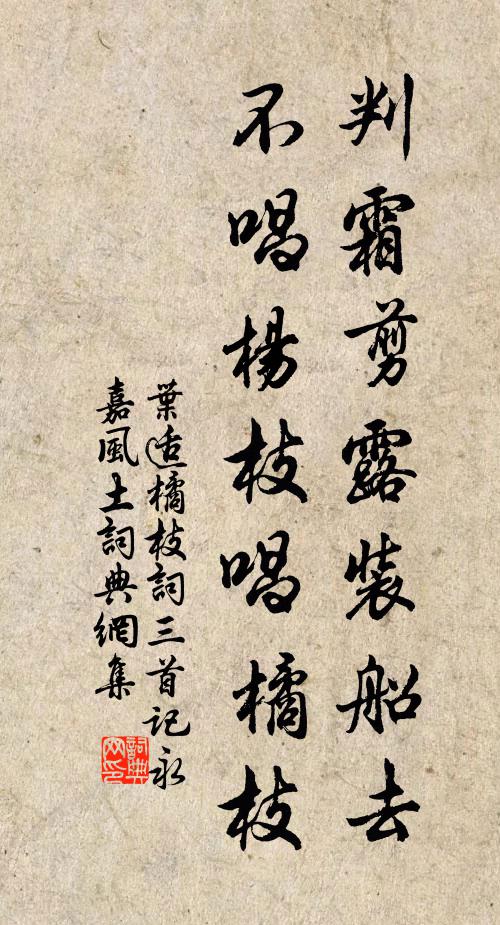 判霜剪露裝船去
不唱楊枝唱橘枝
葉適橘枝詞三首記永
嘉風土詞典網集
詞典網印